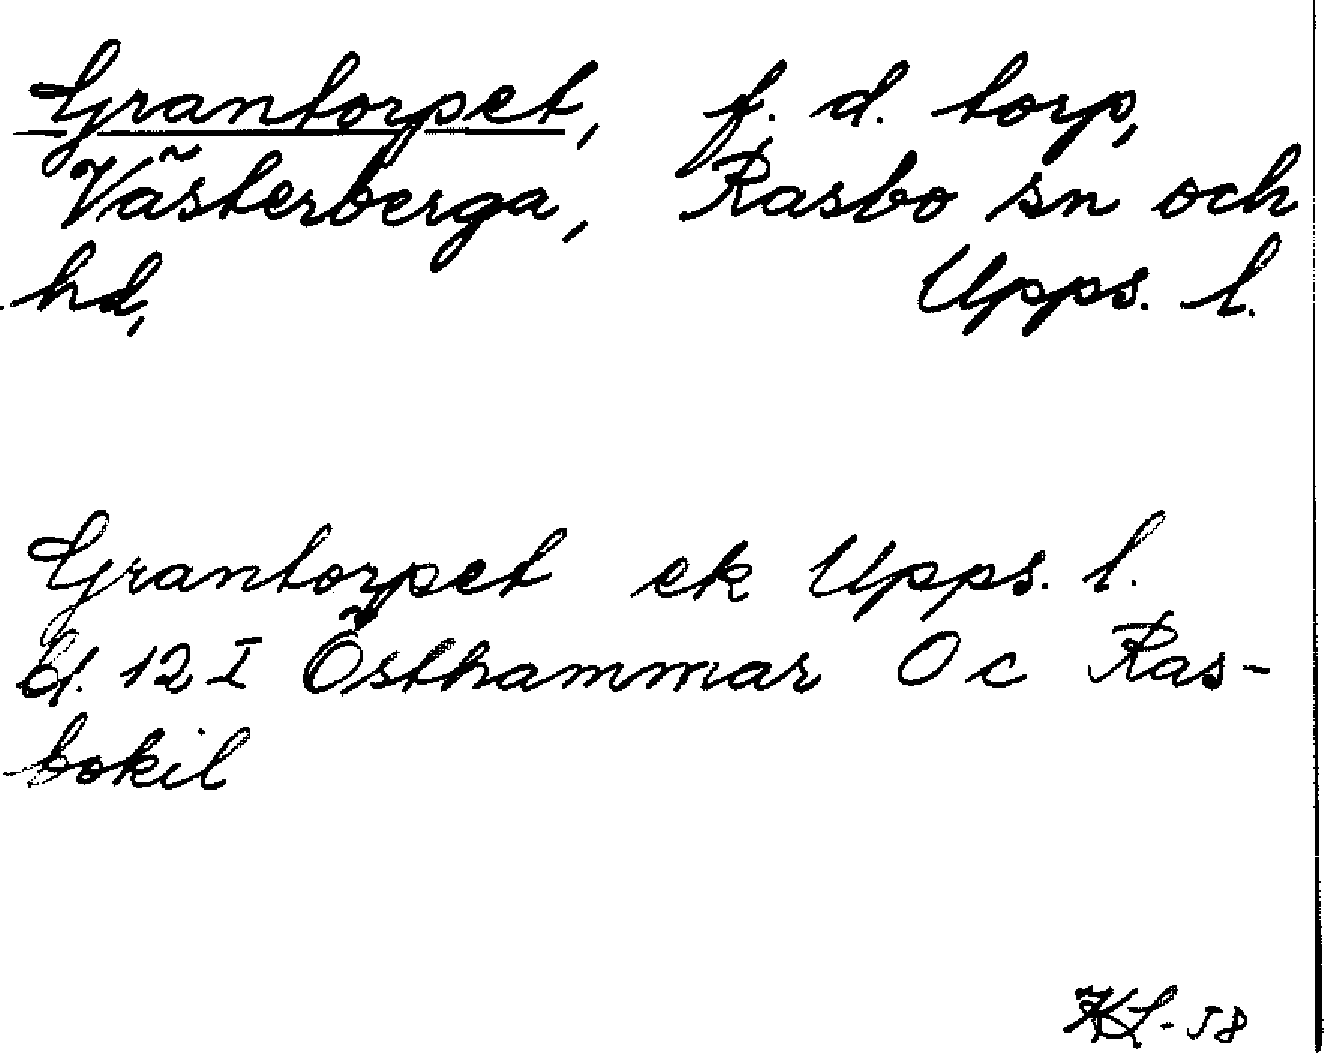 Grantorpet, f. d. torp,
Västerberga, Rasbo sn och
hd, Upps. l.
Grantorpet ek Upps. l.
bl. 12 I Östhammar O c Ras-
bokil
KL-58